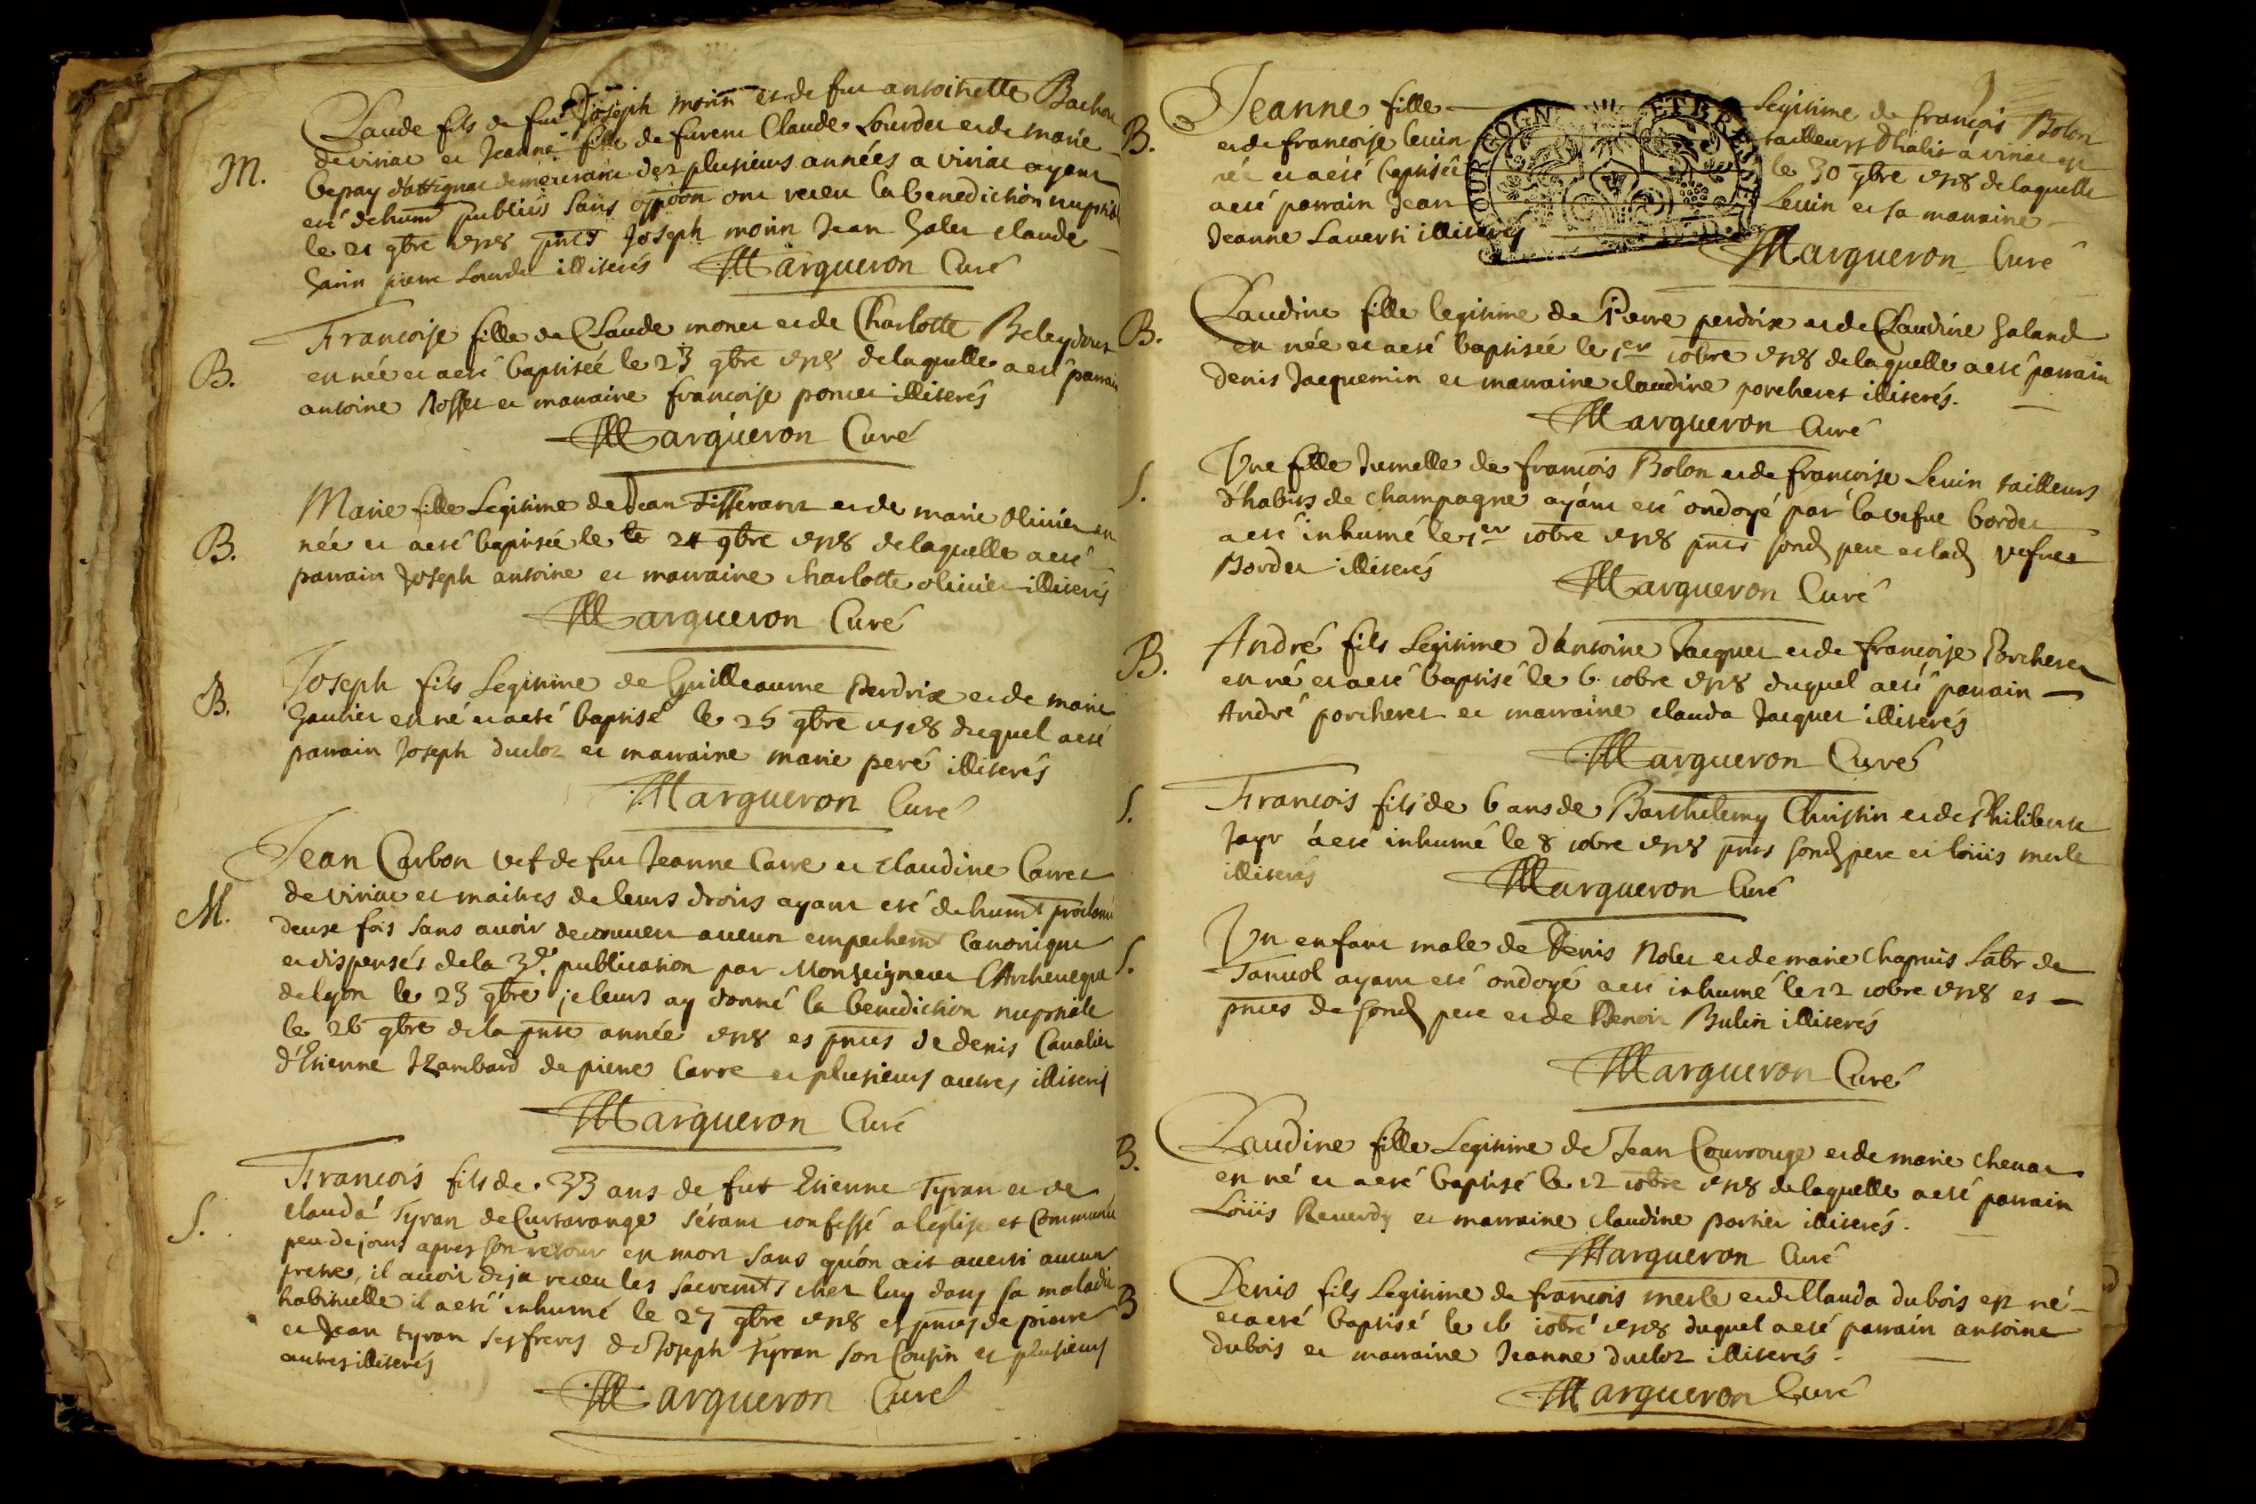 M.
Claude fils de feu Joseph morin et de fue antoinette Bachou
de viriac et Jeanne fille de furent Claude Lourdet et de marie
demeurant dez plusieurs années a viriac ayant
eté dehumt publiés sans oppoon ont receu la benediction nuptiale
le 21 gbre 1718 pnts Joseph morin Jean Galet claude
pierre Lourdet illiterés Margueron Curé
B.
Francoise fille de Claude monet et de Charlotte
est née et a eté baptisée le 23 gbre 1718 de laquelle a eté parrain
antoine Rosset et marraine francoise poncet illiterés
Margueron Curé
B.
Marie fille Legitime de Jean et de marie olivier est
née et a eté baptisée le 24 gbre 1718 de laquelle a eté
parrain Joseph antoine et marraine charlotte olivier illiterés
Margueron Curé
B.
Joseph fils Legitime de Guilleaume Perdrix et de marie
Gautier est né et a eté baptisé le 25 gbre 1718 duquel a eté
parrain Joseph ducloz et marraine marie peré illiterés
Margueron Curé
M.
Jean Carbon vef de fue Jeanne Carre et claudine Carret
de viriac et maitres de leurs droits ayant eté dehumt proclamé
deux fois sans avoir decouvert aucun empechemt Canonique
et dispensés de la 3e. publication par Monseigneur L'Archeveque
de lyon le 23 gbre je leurs ay donné la benediction nuptiale
le 26 gbre de la pnte année 1718 es pnces de denis Cavalier
d'Etienne Izambard de pierre Carre et plusieurs autres illiterés
Margueron Curé
S.
Francois fils de 33 ans de fut Etienne Tyran et de
claudá Tyran de Curtarange s'étant confessé a l'eglise et Communié
peu de jours apres son retour est mort sans qu'ón ait averti aucun
pretre, il avoit deja receu les sacremts chez luy dans sa maladie
habituelle il a eté inhumé le 27 gbre 1718 es pnces de pierre
et Jean tyran ses freres de Joseph Tyran son Cousin et plusieurs
autres illiterés
Margueron Curé
B.
Jeanne fille Legitime de françois Bolon
et de francoise Levin tailleurs d'habit a viriac est
née et a eté baptisée le 30 gbre 1718 de laquelle
a eté parrain Jean Levin et sa marraine
Jeanne Laverti illiterés
OURGOGN ET BRESSE
Margueron Curé
B.
Claudine fille legitime de Pierre perdrix et de Claudine Galand
est née et a eté baptisée le 1er 10bre 1718 de laquelle a eté parrain
denis Jacquemin et marraine claudine porcheret illiterés.
Margueron Curé
S.
Une fille Jumelle de francois Bolon et de francoise Levin tailleurs
d'habits de champagne ayant eté ondoyé par la vefve bordet
a eté inhumé le 1er 10bre 1718 pnts sond pere et lad vefve
Bordet illiterés
Margueron Curé
B.
André fils Legitime d'Antoine Jacquet et de francoise Porcheret
est né et a eté baptisé le 6 10bre 1718 duquel a eté parrain
André porcheret et marraine clauda Jacquet illiterés
Margueron Curé
S.
Francois fils de 6 ans de Barthelemy Christin et de Philiberte
Jayr a eté inhumé le 8 10bre 1718 pnts sond pere et loüis merle
illiterés
Margueron Curé
S.
Un enfant male de Denis Rolet et de marie chapuis Labr de
Tanvol ayant eté ondoyé a eté inhumé le 12 10bre 1718 es
pnces de sond pere et de Benoit Bulin illiterés
Margueron Curé
B.
Claudine fille Legitime de Jean Courrouge et de marie chenat
est né et a eté baptisé le 12 10bre 1718 de laquelle a eté parrain
Loüis Reverdy et marraine claudine portier illiterés.
Margueron Curé
B
Denis fils Legitime de francois merle et de Clauda dubois est né
et a eté baptisé le 16 10bre 1718 duquel a eté parrain antoine
dubois et marraine Jeanne ducloz illiterés.
Margueron Curé